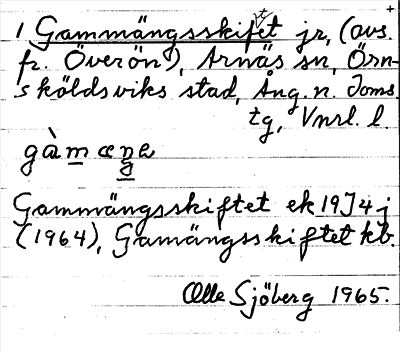 +
1 Gammängsskiftet jr, (avs.
fr. Överön), Arnäs sn, Örn-
sköldsviks stad, Ång. n. Toms.
tg, Vnrl. l.
gàmæŋa
Gammängsskiftet ek 19J4j
(1964), Gamängsskiftet kb.
Olle Sjöberg 1965.